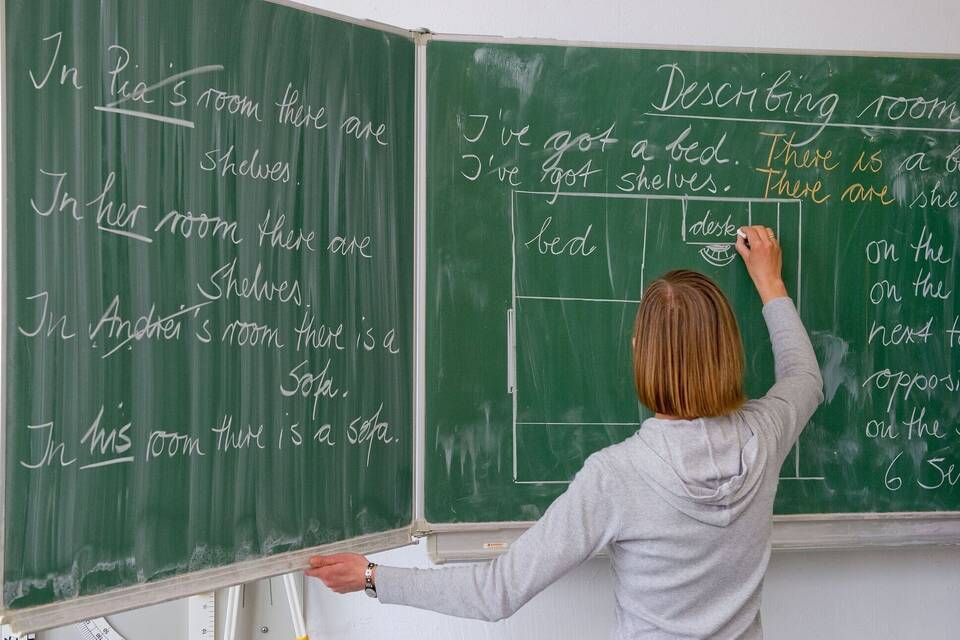 In Pia's room there are
shelves.
In her room there are
Shelves.
In Andrei's room there is a
Sofa.
In his room there is a sofa.
Describing room
I've got a bed. There is a
I've got shelves. There are she
bed
desk
on the
on the
next
opposi
on the
6